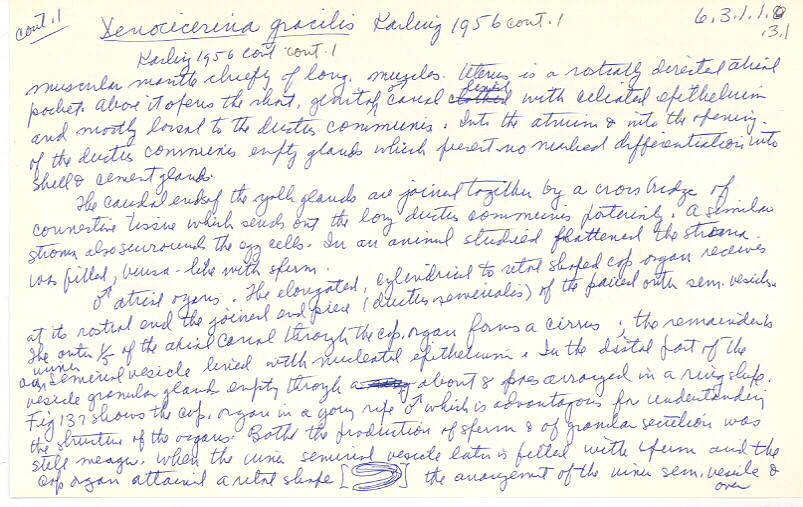 cont. 1 Xenocicerina gracilis Karling 1956 cont. 1 6.3.1.1.8
.3.1
Karling 1956 cont cont. 1
muscular mantle chiefly of long. muscles. Uterus is a rostrally directed atrial
pocket. Above it opens the short, genital canal lined with ciliated epithelium
and mostly dorsal to the ductus communis. Into the atrium & into the opening
of the ductus communis empty glands which present no marked differentiation into
shell & cement glands.
The caudal ends of the yolk glands are joined together by a cross bridge of
connective tissue which sends out the long ductus communis posteriorly. A similar
stroma also surrounds the egg cells. In an animal studied flattened the stroma
was filled, bursa-like with sperm.
♂ atrial organs. The elongated, cylindrical to retort shaped cop. organ receives
at its rostral end the joined end piece (ductus seminalis) of the paired outer sem. vesicles.
The outer 1/3 of the atrial canal through the cop. organ forms a cirrus, the remainder is
an inner seminal vesicle lined with nucleated epithelium. In the distal part of the
vesicle granular glands empty through about 8 pores arranged in a ring shape.
Fig 137 shows the cop. organ in a young ripe ♂ which is advantageous for understanding
the structure of the organs. Both the production of sperm & of granular secretion was
still meager. When the inner seminal vesicle later is filled with sperm and the
cop organ attained a retort shape [ ] the arrangement of the inner sem. vesicle &
over